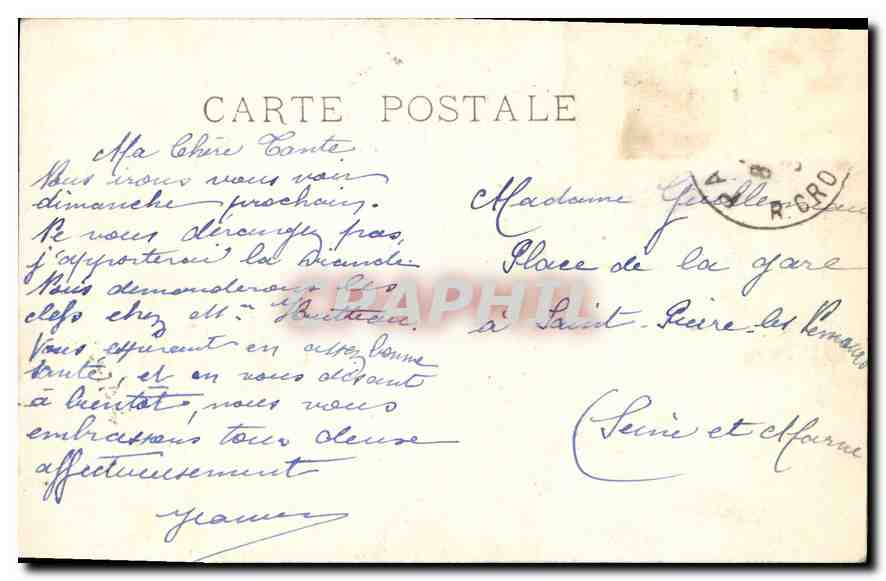 CARTE POSTALE
Ma Chère Tante
Nous irons vous voir
dimanche prochain.
Ne vous dérangez pas,
j'apporterai la viande.
Nous demanderons les
clefs chez Mme
Vous espérant en assez bonne
santé, et en vous disant
à bientôt, nous vous
embrassons tous deux
affectueusement
Madame
Place de la gare
à Saint-Pierre-les Nemours
(Seine et Marne
PA
8
R. GRO
CPAPHIL